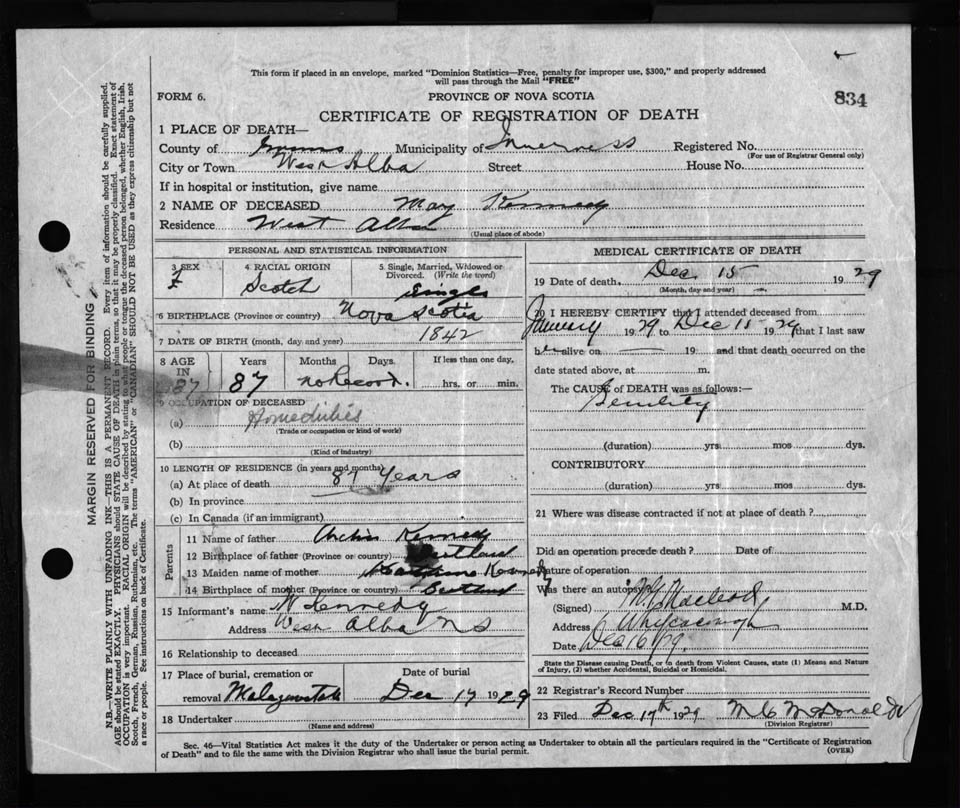 This form if placed in an envelope, marked "Dominion Statistics—Free, penalty for improper use, $300," and properly addressed
will pass through the Mail "FREE"
FORM 6.
PROVINCE OF NOVA SCOTIA
834
CERTIFICATE OF REGISTRATION OF DEATH
1 PLACE OF DEATH—
County of Municipality of Inverness Registered No.
(For use of Registrar General only)
City or Town West Alba Street House No.
If in hospital or institution, give name
2 NAME OF DECEASED May Kennedy
Residence West Alba
(Usual place of abode)
PERSONAL AND STATISTICAL INFORMATION
3 SEX
F
4 RACIAL ORIGIN
Scotch
5 Single, Married, Widowed or
Divorced. (Write the word)
Single
6 BIRTHPLACE (Province or country) Nova Scotia
7 DATE OF BIRTH (month, day and year) 1842
8 AGE
IN
87
Years Months Days. If less than one day,
87 no Record. hrs. or min.
9 OCCUPATION OF DECEASED
(a) Homeduties
(Trade or occupation or kind of work)
(b)
(Kind of industry)
10 LENGTH OF RESIDENCE (in years and months)
(a) At place of death 87 years
(b) In province
(c) In Canada (if an immigrant)
Parents
11 Name of father Kennedy
12 Birthplace of father (Province or country) Scotland
13 Maiden name of mother Kennedy
14 Birthplace of mother (Province or country) Scotland
15 Informant's name Kennedy
Address West Alba N S
16 Relationship to deceased
17 Place of burial, cremation or
removal
Date of burial
Dec 17 1929
18 Undertaker
(Name and address)
MEDICAL CERTIFICATE OF DEATH
19 Date of death, Dec 15 1929
(Month, day and year)
20 I HEREBY CERTIFY that I attended deceased from
January 1929 to Dec 15 1929 that I last saw
her alive on — 19 and that death occurred on the
date stated above, at m.
The CAUSE of DEATH was as follows:—
Senility
(duration) yrs. mos dys.
CONTRIBUTORY
(duration) yrs mos. dys.
21 Where was disease contracted if not at place of death?
Did an operation precede death? Date of
Nature of operation
Was there an autopsy?
(Signed) Macleod M.D.
Address Whycocomagh
Date Dec 16/29
State the Disease causing Death, or in death from Violent Causes, state (1) Means and Nature
of Injury, (2) whether Accidental, Suicidal or Homicidal.
22 Registrar's Record Number
23 Filed Dec 17th 1929 McDonald
(Division Registrar)
Sec. 46—Vital Statistics Act makes it the duty of the Undertaker or person acting as Undertaker to obtain all the particulars required in the "Certificate of Registration
of Death" and to file the same with the Division Registrar who shall issue the burial permit.
(OVER)
MARGIN RESERVED FOR BINDING
N.B.—WRITE PLAINLY WITH UNFADING INK—THIS IS A PERMANENT RECORD. Every item of information should be carefully supplied.
AGE should be stated EXACTLY. PHYSICIANS should STATE CAUSE OF DEATH in plain terms, so that it may be properly classified. Exact statement of
OCCUPATION is very important. RACIAL ORIGIN will be described by stating to what people or tongue the deceased person belonged, whether English, Irish,
Scotch, French, German, Russian, Ruthenian, etc. The terms "AMERICAN" or "CANADIAN" SHOULD NOT BE USED as they express citizenship but not
a race or people. See instructions on back of Certificate.